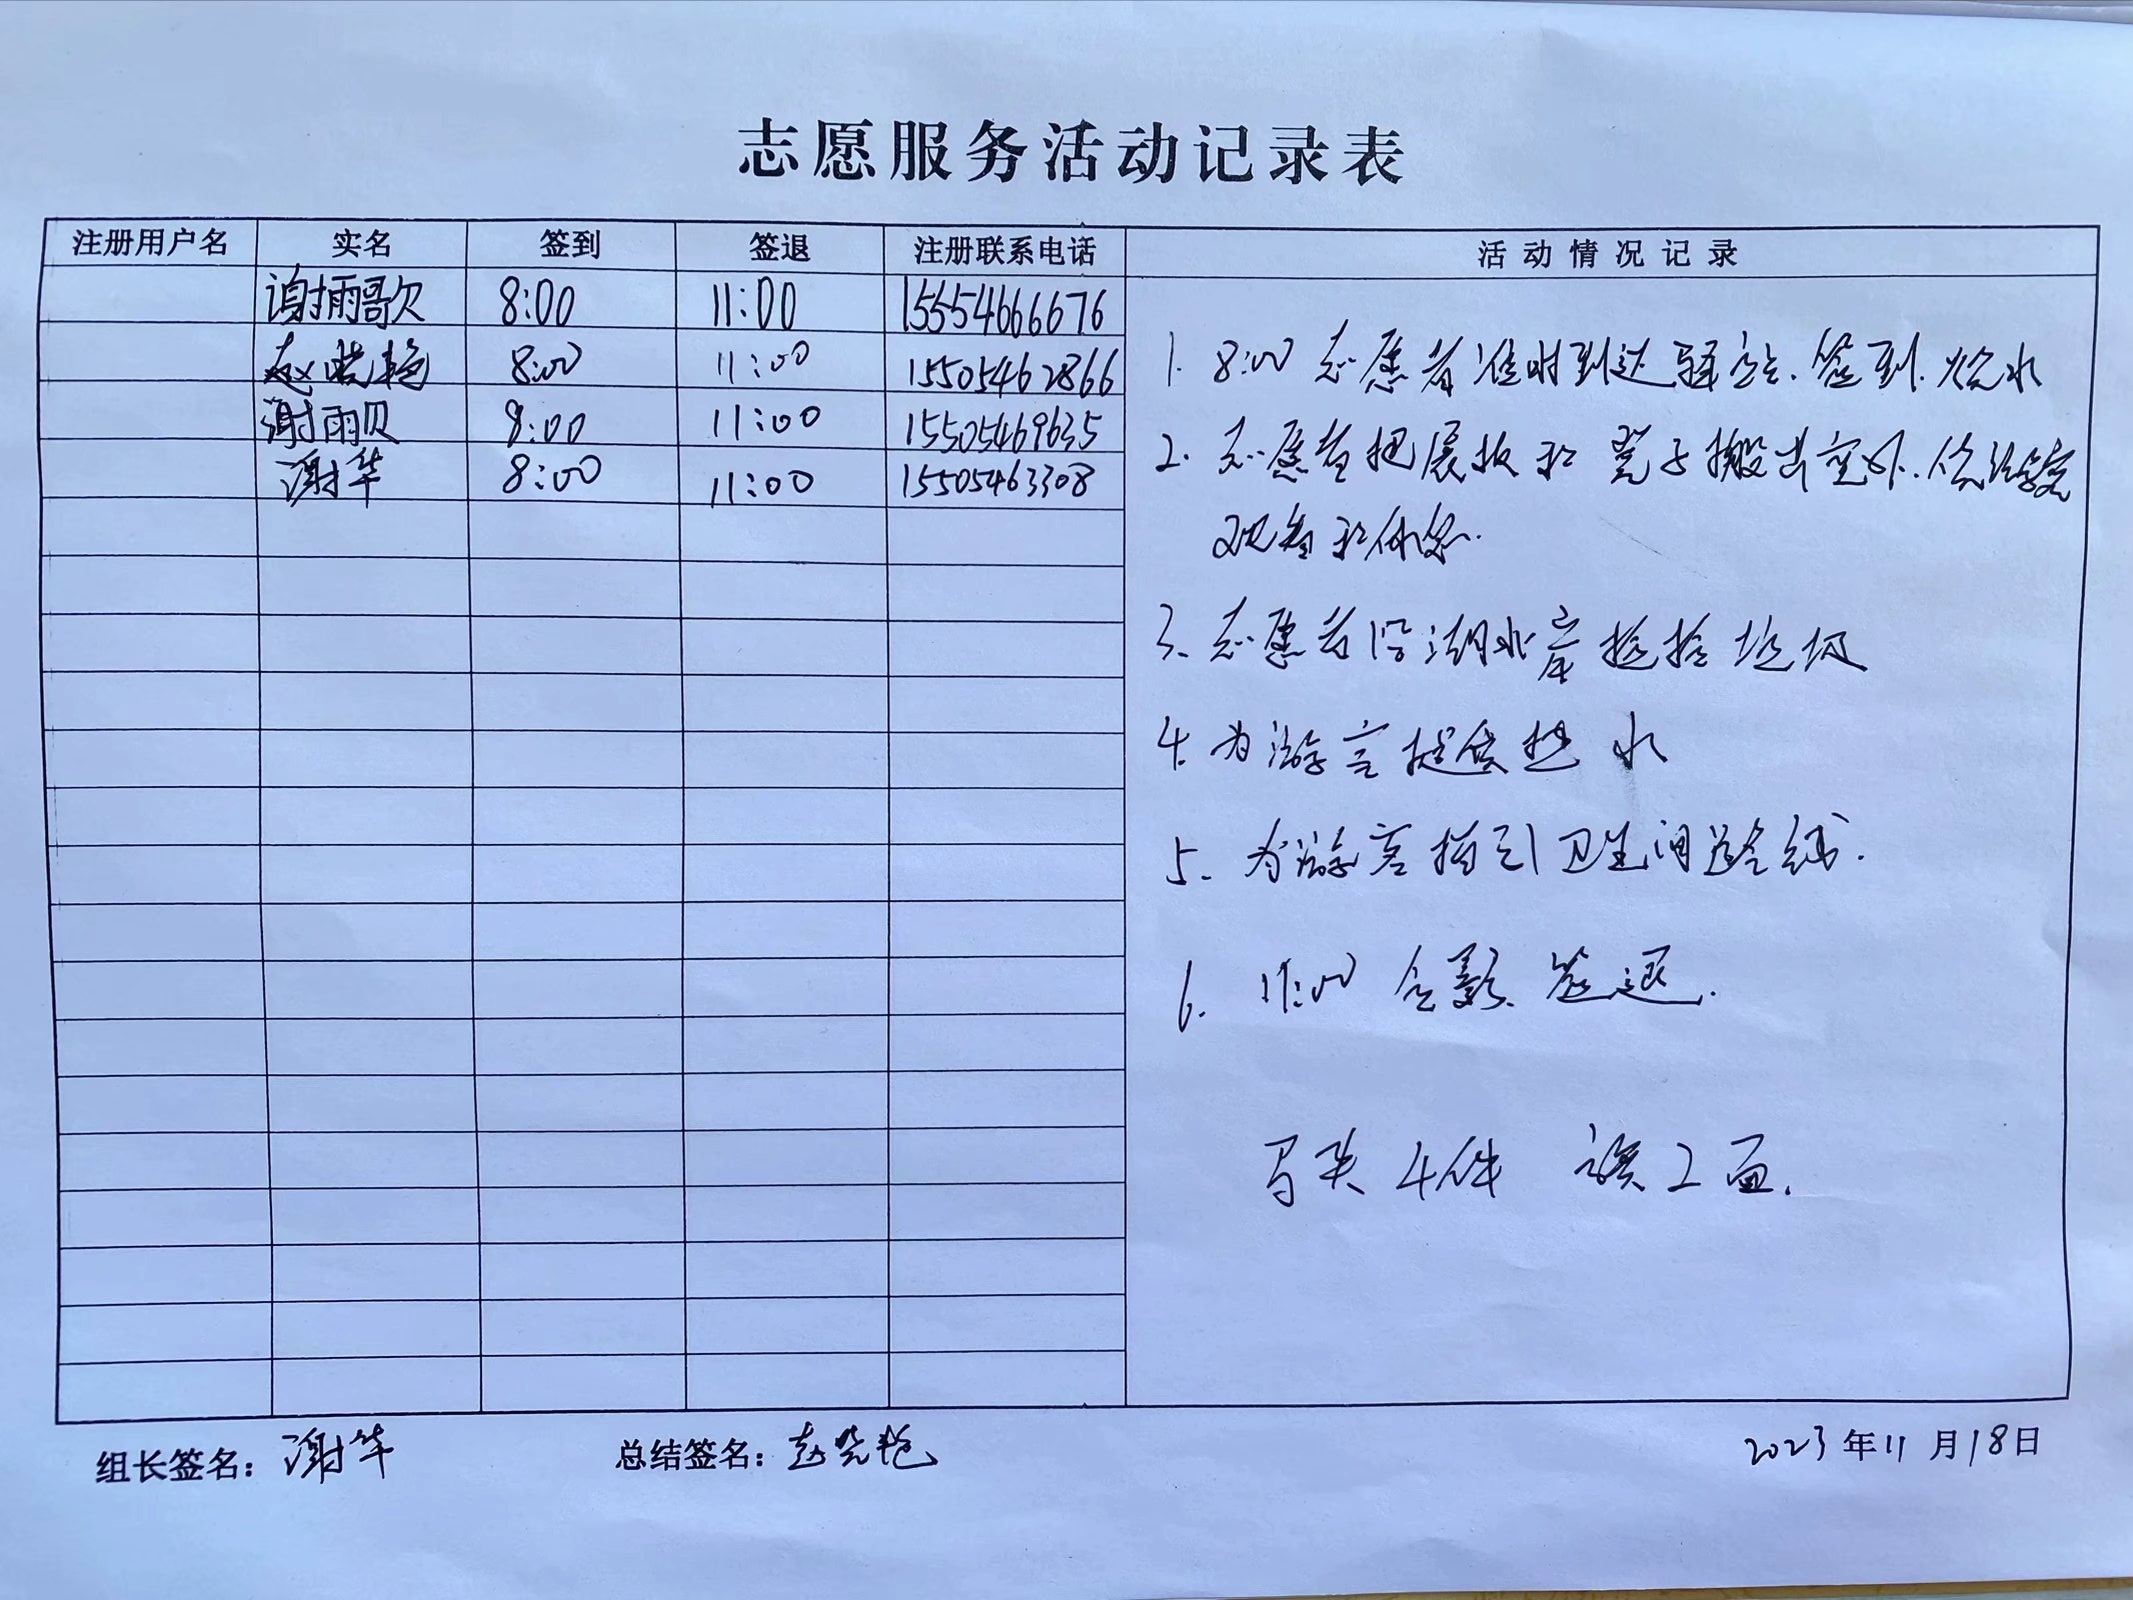 志愿服务活动记录表
注册用户名 实名 签到 签退 注册联系电话 活动情况记录
谢雨歌 8:00 11:00 15554666676
赵晓艳 8:00 11:00 15505462866
谢雨贝 8:00 11:00 15505469635
谢华 8:00 11:00 15505463308
1. 8:00 志愿者准时到达驿站、签到、烧水
2. 志愿者把展板和凳子搬出室外、供游客
观看和休息.
3. 志愿者沿湖北岸捡拾垃圾
4. 为游客提供热水
5. 为游客指引卫生间路线.
6. 11:00 合影、签退.
马夹4件 旗2面.
组长签名：谢华 总结签名：赵晓艳 2023年11月18日